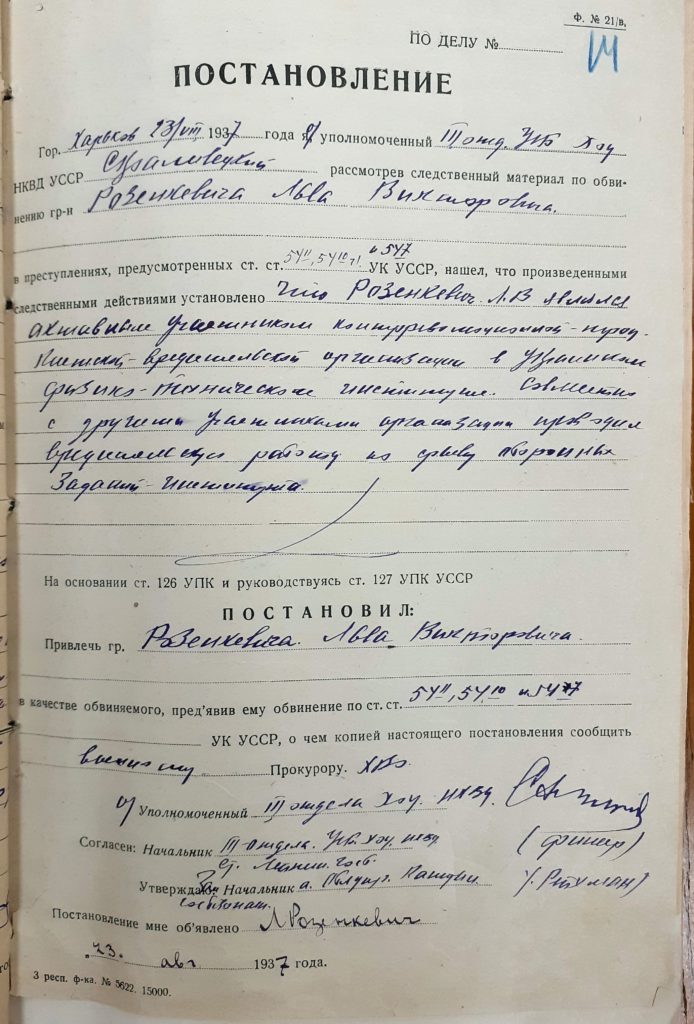 Ф. № 21/в.
ПО ДЕЛУ №
14
ПОСТАНОВЛЕНИЕ
Гор. Харьков 23/VIII 1937 года я, о/ уполномоченный III отд. УГБ ХОУ
НКВД УССР рассмотрев следственный материал по обви-
нению гр-н Розенкевича Льва Викторовича.
и 54 7
в преступлениях, предусмотренных ст. ст. 54 11, 54 10 УК УССР, нашел, что произведенными
следственными действиями установлено что Розенкевич Л.В являлся
активным участником контрреволюционной троц-
кистской вредительской организации в Украинском
физико-техническом институте. Совместно
с другими участниками организации проводил
вредительскую работу по срыву оборонных
заданий института.
На основании ст. 126 УПК и руководствуясь ст. 127 УПК УССР
ПОСТАНОВИЛ:
Привлечь гр. Розенкевича Льва Викторовича.
в качестве обвиняемого, пред'явив ему обвинение по ст. ст. 54 11, 54 10 и 54 7
УК УССР, о чем копией настоящего постановления сообщить
военному Прокурору. ХВО
о/ Уполномоченный III отдела ХОУ НКВД
Согласен: Начальник III отдела УГБ ХОУ НКВД
ст. Лейтен. госб.
Утверждаю: Начальник
Постановление мне об'явлено Л Розенкевич
23. авг 1937 года.
3 респ. ф-ка. № 5622. 15000.